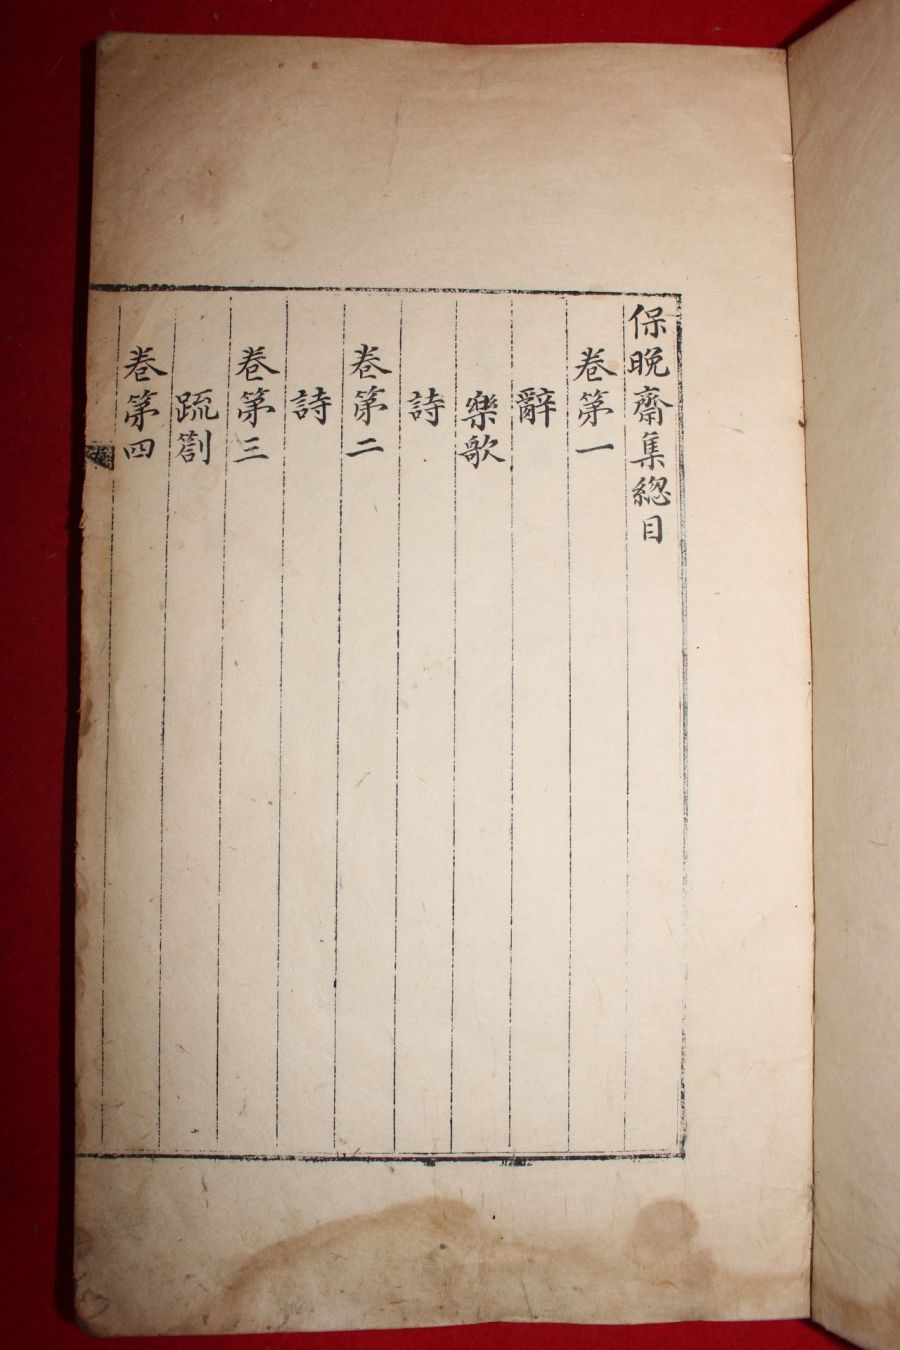 保晚齋集總目
卷第一
辭
樂歌
詩
卷第二
詩
卷第三
疏劄
卷第四